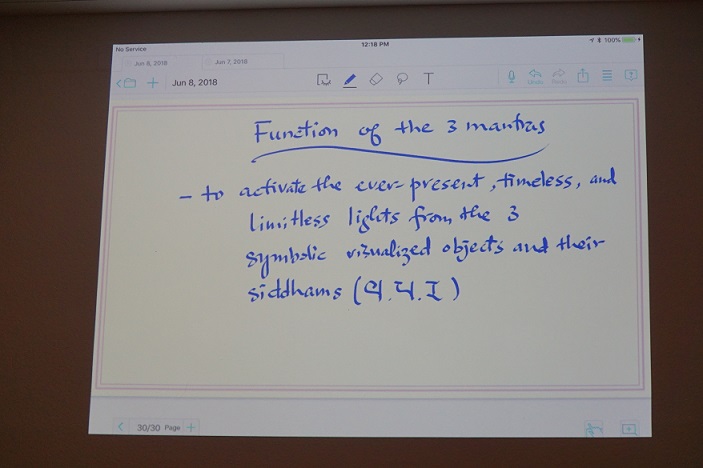 No Service
12:18 PM
100%
Jun 8, 2018
Jun 7, 2018
Jun 8, 2018
T
Function of the 3 mantras
- to activate the ever-present, timeless, and
limitless lights from the 3
symbolic visualized objects and their
siddhams (
30/30 Page +